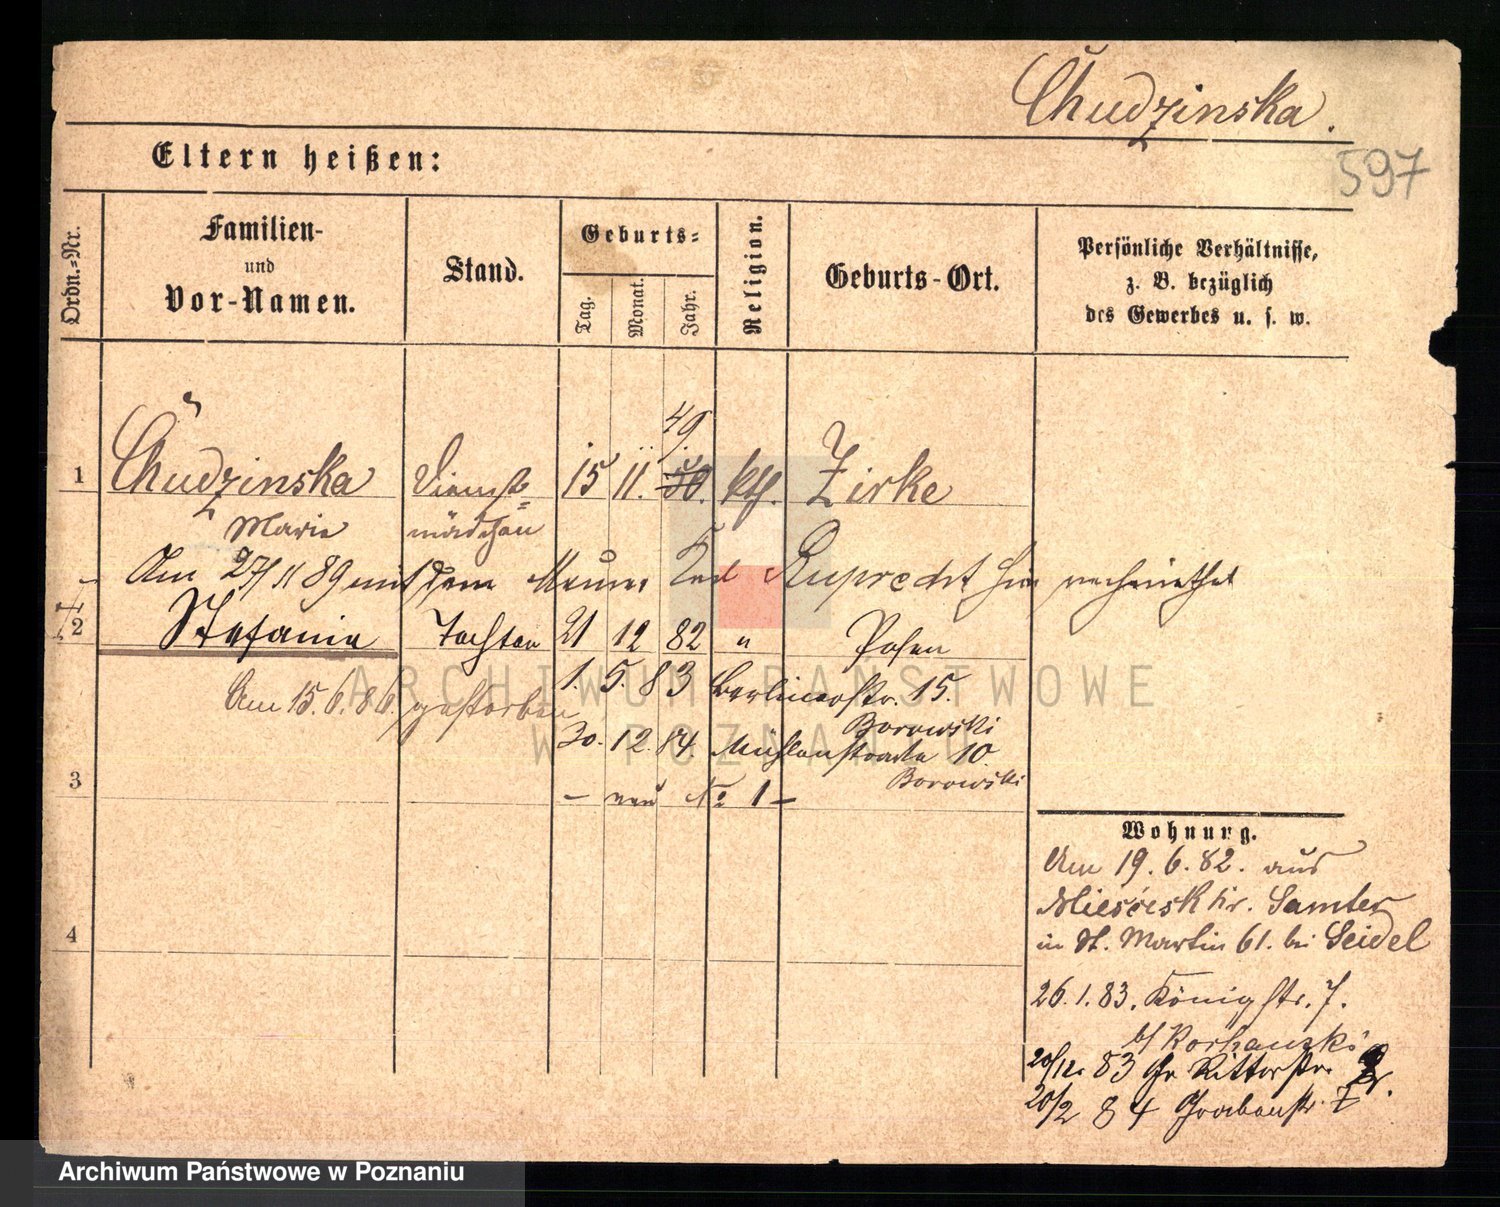 Chudzinska.
597
Eltern heißen:
Ordn.-Nr.
Familien-
und
Vor-Namen.
Stand.
Geburts-
Tag.
Monat.
Jahr.
Religion.
Geburts-Ort.
Persönliche Verhältnisse,
z. B. bezüglich
des Gewerbes u. s. w.
49.
1 Chudzinska Dienst= 15 11. 50. kth. Zirke
Marie mädchen
Am 27/11 89 mit dem Maurer Ruprecht hier verheirathet
2 Stefania Tochter 21 12 82 " Posen
1. 5. 83 Berlinerstr. 15.
Am 15.6.86. gestorben
Borowski
30. 12. 84 Mühlenstraße 10.
Borowski
3
— neu No 1 —
Wohnung.
Am 19. 6. 82. aus
Kr. Samter
4
in St. Martin 61. bei Seidel
26. 1. 83. Königstr. 7.
b/
20/12. 83 Gr Ritterstr.
20/2 84 Grabenstr. 7
ARCHIWUM PAŃSTWOWE
W POZNANIU
Archiwum Państwowe w Poznaniu